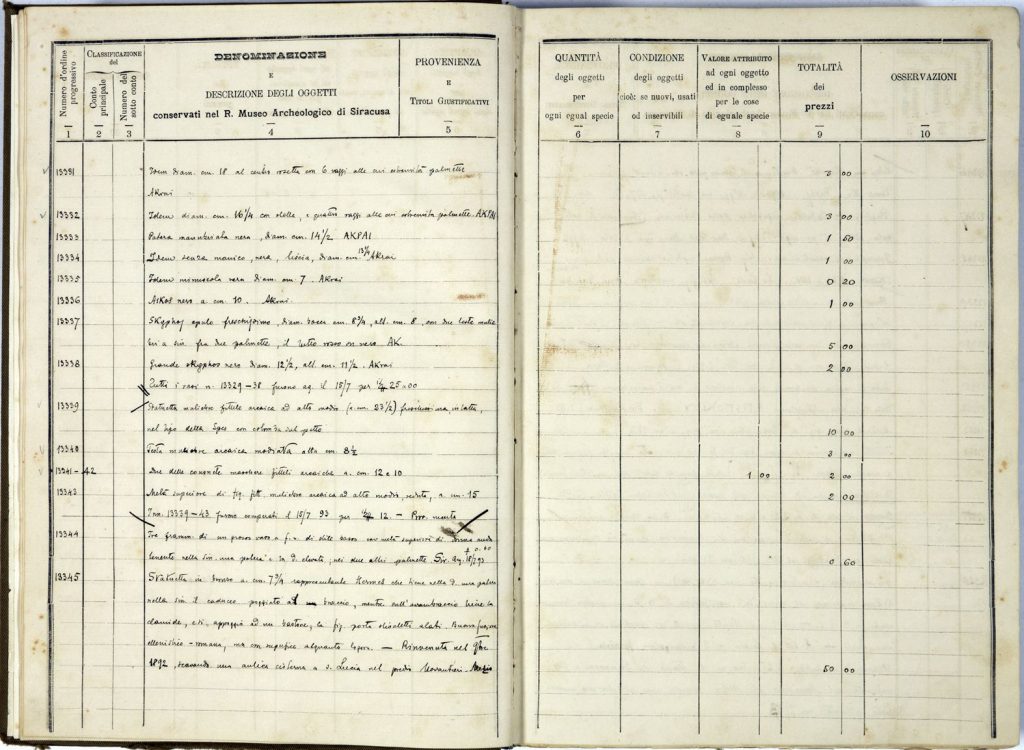 Numero d'ordine progressivo
Classificazione del
Conto principale
Numero del sotto conto
DENOMINAZIONE
E
DESCRIZIONE DEGLI OGGETTI
conservati nel R. Museo Archeologico di Siracusa
PROVENIENZA
E
Titoli Giustificativi
1 2 3 4 5
QUANTITÀ degli oggetti per ogni egual specie
CONDIZIONE degli oggetti cioè: se nuovi, usati od inservibili
Valore attribuito ad ogni oggetto ed in complesso per le cose di eguale specie
TOTALITÀ dei prezzi
OSSERVAZIONI
6 7 8 9 10
13331 Idem diam. cm. 18 al centro rosetta con 6 raggi alle cui estremità palmette
Akrai
13332 Idem diam. cm. 16 1/4 con stelle, e quattro raggi alle cui estremità palmette. AKPAI 3 00
13333 Patera nera, diam. cm. 14 1/2 AKPAI 1 50
13334 Idem senza manico, nera, liscia, diam. cm. 13 Akrai 1 00
13335 Idem minuscola nera diam. cm. 7. Akrai 0 20
13336 Askos nero a cm. 10. Akrai. 1 00
13337 Skyphos apulo freschissimo, diam. bocca cm. 8 3/4, alt. cm. 8, con due teste mulie
bri a sin. fra due palmette, il tutto rosso su nero AK. 5 00
13338 Grande skyphos nero diam. 12 1/2, alt. cm. 11 1/2. Akrai 2 00
Tutti i vasi n. 13329-38 furono aq. il 15/7 per 25.00
13339 Statuetta muliebre fittile arcaica ad alto modio (a cm. 23 1/2)
nel tipo della Spes con colomba sul petto 10 00
13340 Testa muliebre arcaica modiata alta cm. 8 1/2 3 00
13341-42 Due delle consuete maschere fittili arcaiche a. cm. 12 e 10 1 00 2 00
13343 Metà superiore di fig. fitt. muliebre arcaica ad alto modio, seduta, a cm. 15 2 00
Inn. 13339-43 furono comperati il 15/7 93 per 12. - Prov.
13344 Tre framm. di un grosso vaso a f. r. di stile con metà superiore di donna
tenente nella sin. una patera e la d. elevata; nei due altri palmette Sir. Aq. 18/7 93 0 60
13345 Statuetta in bronzo a cm. 7 3/4 rappresentante Hermes che tiene nella d. una patera
nella sin. il caduceo poggiato al braccio, mentre sull'avambraccio tiene la
clamide, e si appoggia ad un bastone; la fig. porta alati. Buona
ellenistico-romana, ma con superficie alquanto. - Rinvenuta nel
1892, scavando una antica cisterna a S. Lucia nel predio 50 00